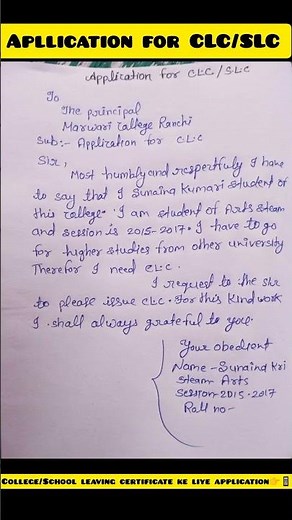 APLLICATION FOR CLC/SLC
Application for CLC/SLC
To
The principal
Marwari College Ranchi
Sub:- Application for CLC
Sir,
Most humbly and respectfuly I have
to say that I Sunaina Kumari student of
this College. I am student of Arts steam
and session is 2015-2017. I have to go
for higher studies from other university
Therefor I need CLC.
I request to the sir
to please issue CLC. For this Kind work
I shall always grateful to you.
Your obedient
Name - Sunaina Kri
steam Arts
Session-2015-2017
Roll no-
COLLEGE/SCHOOL LEAVING CERTIFICATE KE LIYE APPLICATION👉📱